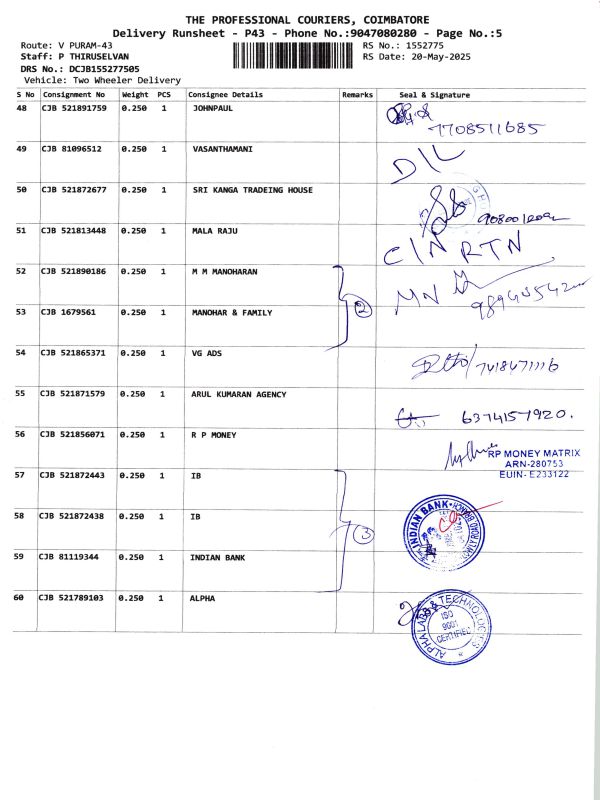 THE PROFESSIONAL COURIERS, COIMBATORE
Delivery Runsheet - P43 - Phone No.:9047080280 - Page No.:5
Route: V PURAM-43 RS No.: 1552775
Staff: P THIRUSELVAN RS Date: 20-May-2025
DRS No.: DCJB155277505
Vehicle: Two Wheeler Delivery
S No Consignment No Weight PCS Consignee Details Remarks Seal & Signature
48 CJB 521891759 0.250 1 JOHNPAUL
7708511685
49 CJB 81096512 0.250 1 VASANTHAMANI D/L
50 CJB 521872677 0.250 1 SRI KANGA TRADEING HOUSE
51 CJB 521813448 0.250 1 MALA RAJU C/N RTN
52 CJB 521890186 0.250 1 M M MANOHARAN
2
53 CJB 1679561 0.250 1 MANOHAR & FAMILY
54 CJB 521865371 0.250 1 VG ADS
7418471116
55 CJB 521871579 0.250 1 ARUL KUMARAN AGENCY
6374157920.
56 CJB 521856071 0.250 1 R P MONEY
RP MONEY MATRIX
ARN-280753
EUIN- E233122
57 CJB 521872443 0.250 1 IB
58 CJB 521872438 0.250 1 IB
INDIAN BANK
3
59 CJB 81119344 0.250 1 INDIAN BANK
60 CJB 521789103 0.250 1 ALPHA
ALPHALABS & TECHNOLOGIES
ISO
9001
CERTIFIED